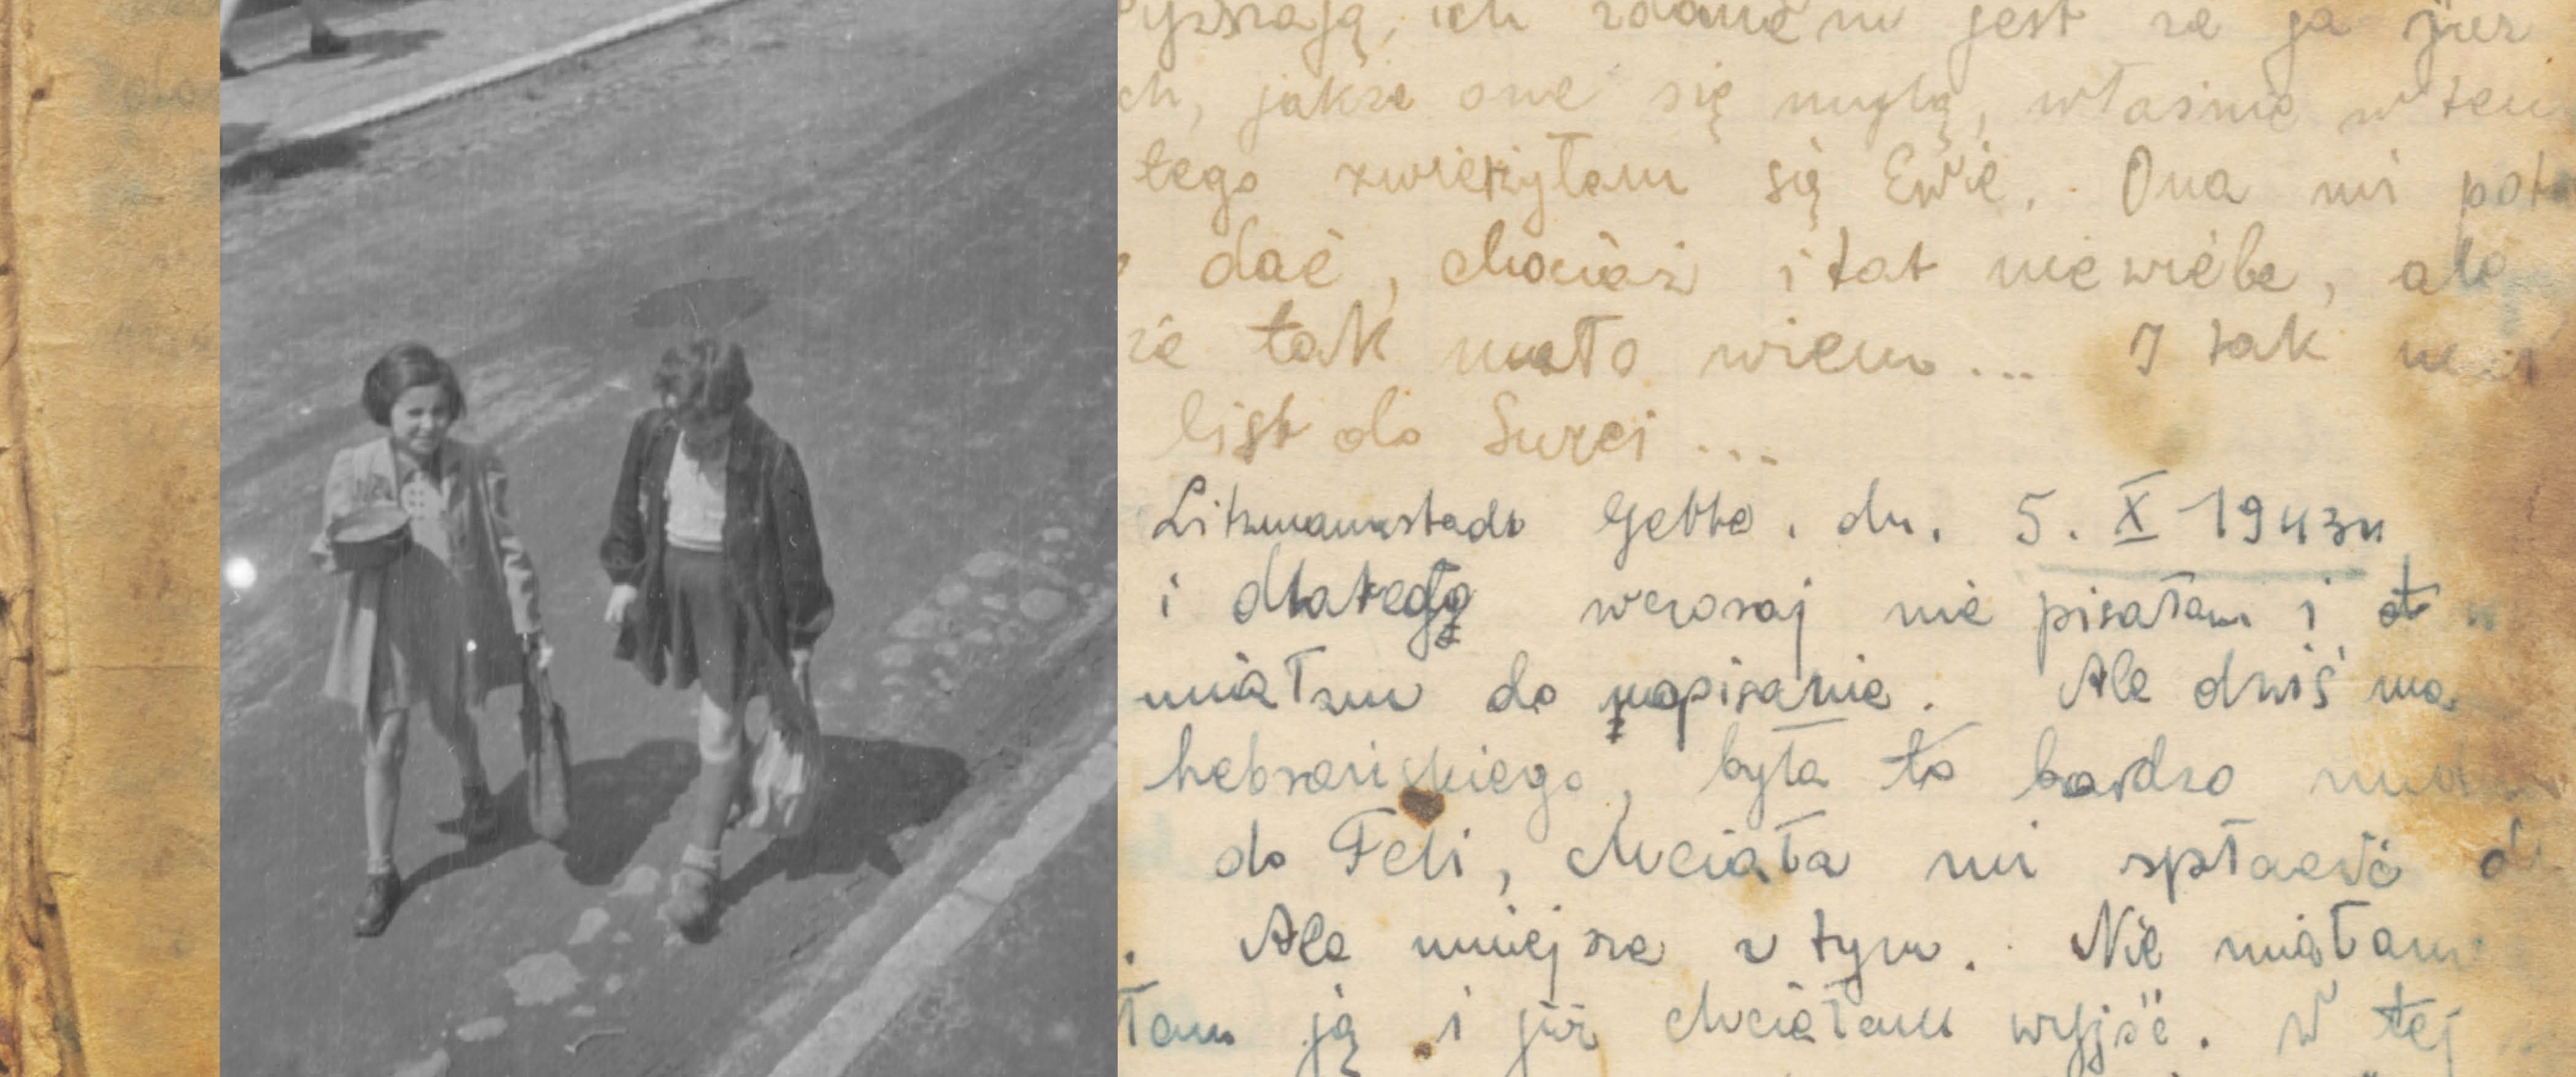 ich zdaniem jest że ja już
ch, jakże one się mylą, właśnie w tem
tego zwierzyłam się Ewie. Ona mi
dać, chociaż i tat niewiele, ale
że tak mało wiem... I tak
list do Surci...
Litzmannstadt Getto. dn. 5. X 1943r
i dlatego wczoraj nie pisałam i ot
miałam do napisania. Ale dziś
hebrajskiego, była to bardzo
do Feli, chciała mi spłacić
. Ale mniejsze z tym. Nie miałam
łam ją i już chciałam wyjść. W tej